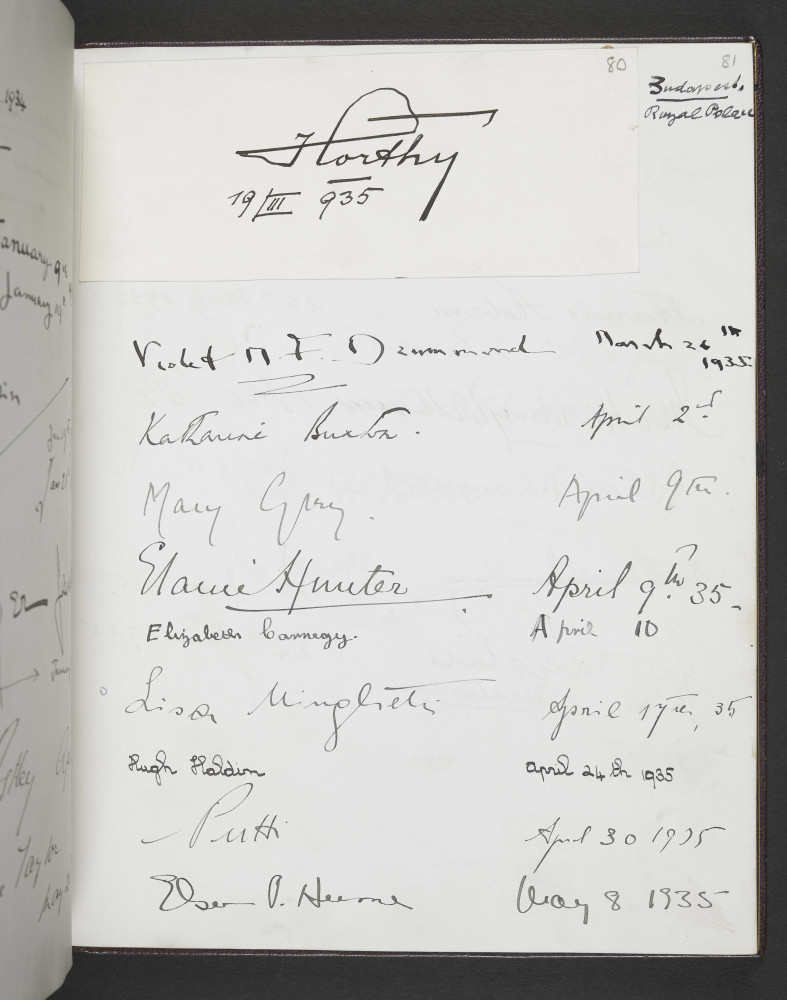 80
81
Budapest,
Royal Palace
Horthy
19/III 935
Violet M. F. Drummond March 26th
1935.
Katharine Buxton. April 2nd
Mary April 9th.
Elaine Hunter April 9th. 35.
Elizabeth Carnegy. April 10
Lisa April 17th, 35
Hugh Haldin april 24th 1935
Putti April 30 1935
P. May 8 1935
1934
January 9th
January 19th
Taylor